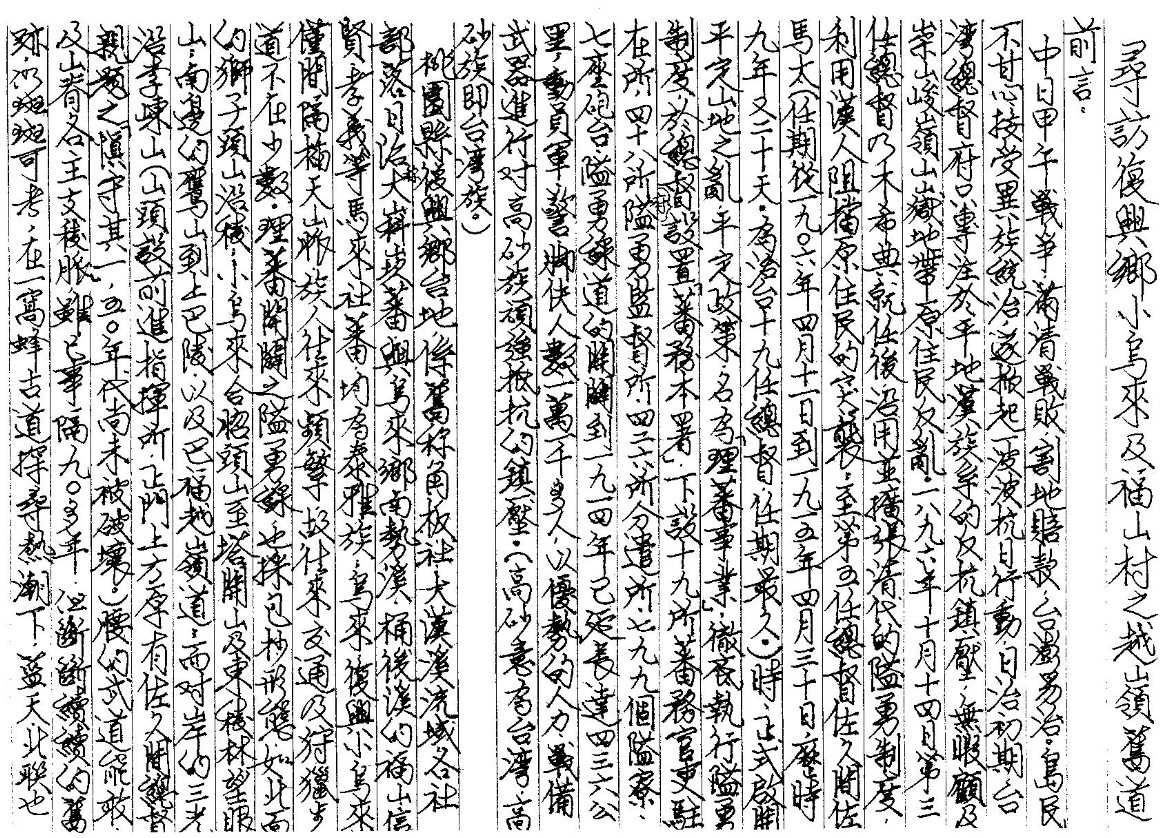 尋訪復興鄉小烏來及福山村之越山嶺舊道
前言：
中日甲午戰爭滿清戰敗割地賠款，台澎易治，島民
不甘心接受異族統治，遂掀起一波波抗日行動，日治初期台
灣總督府只專注於平地漢族系的反抗鎮壓，無暇顧及
崇山峻嶺山嶽地帶原住民反亂。一八九六年十月十四日第三
任總督乃木希典就任後沿用並擴張清代的隘勇制度，
利用漢人阻擋原住民的突襲，至第五任總督佐久間佐
馬太（任期從一九○六年四月十一日到一九一五年四月三十日，歷時
九年又二十天。為治台十九任總督任期最久。）時，正式啟開
平定山地之亂平定政策，名為「理蕃事業」徹底執行隘勇
制度，於總督府設置蕃務本署，下設十九所蕃務官吏駐
在所，四十八所隘勇監督所，四二六所分遣所，七九九個隘寮，
七座砲台，隘勇線道的開闢到一九一四年已延長達四三六公
里，動員軍、警、腳伕人數一萬一千多人，以優勢的人力、戰備
武器進行对高砂族頑強抵抗的鎮壓。（高砂意為台灣，高
砂族即台灣族。）
桃園縣復興鄉台地係舊稱角板社大漢溪流域各社
部落日治大嵙崁蕃與烏來鄉南勢溪、桶後溪的福山信
賢、孝義等馬來社蕃，均為泰雅族，烏來復興小烏來
僅間隔插天山脈，族人往來頻繁，故往來交通及狩獵步
道不在少數，理蕃開闢之隘勇線也採包抄形態，如北面
的獅子頭山沿稜小烏來合昭頭山至塔開山及東稜林望眼
山，南邊的鴛山到上巴陵以及巴福越嶺道，而对岸的三光
沿李崠山（山頭設前進指揮所，正門上方原有佐久間總督
親題之「慎守其一」，五○年代尚未被破壞。）腰的武道能敢
及山脊各主支稜脈，雖已事隔九○多年，但斷斷續續的舊
跡，仍斑斑可考，在一窩蜂古道探尋熱潮下，藍天、北聯也